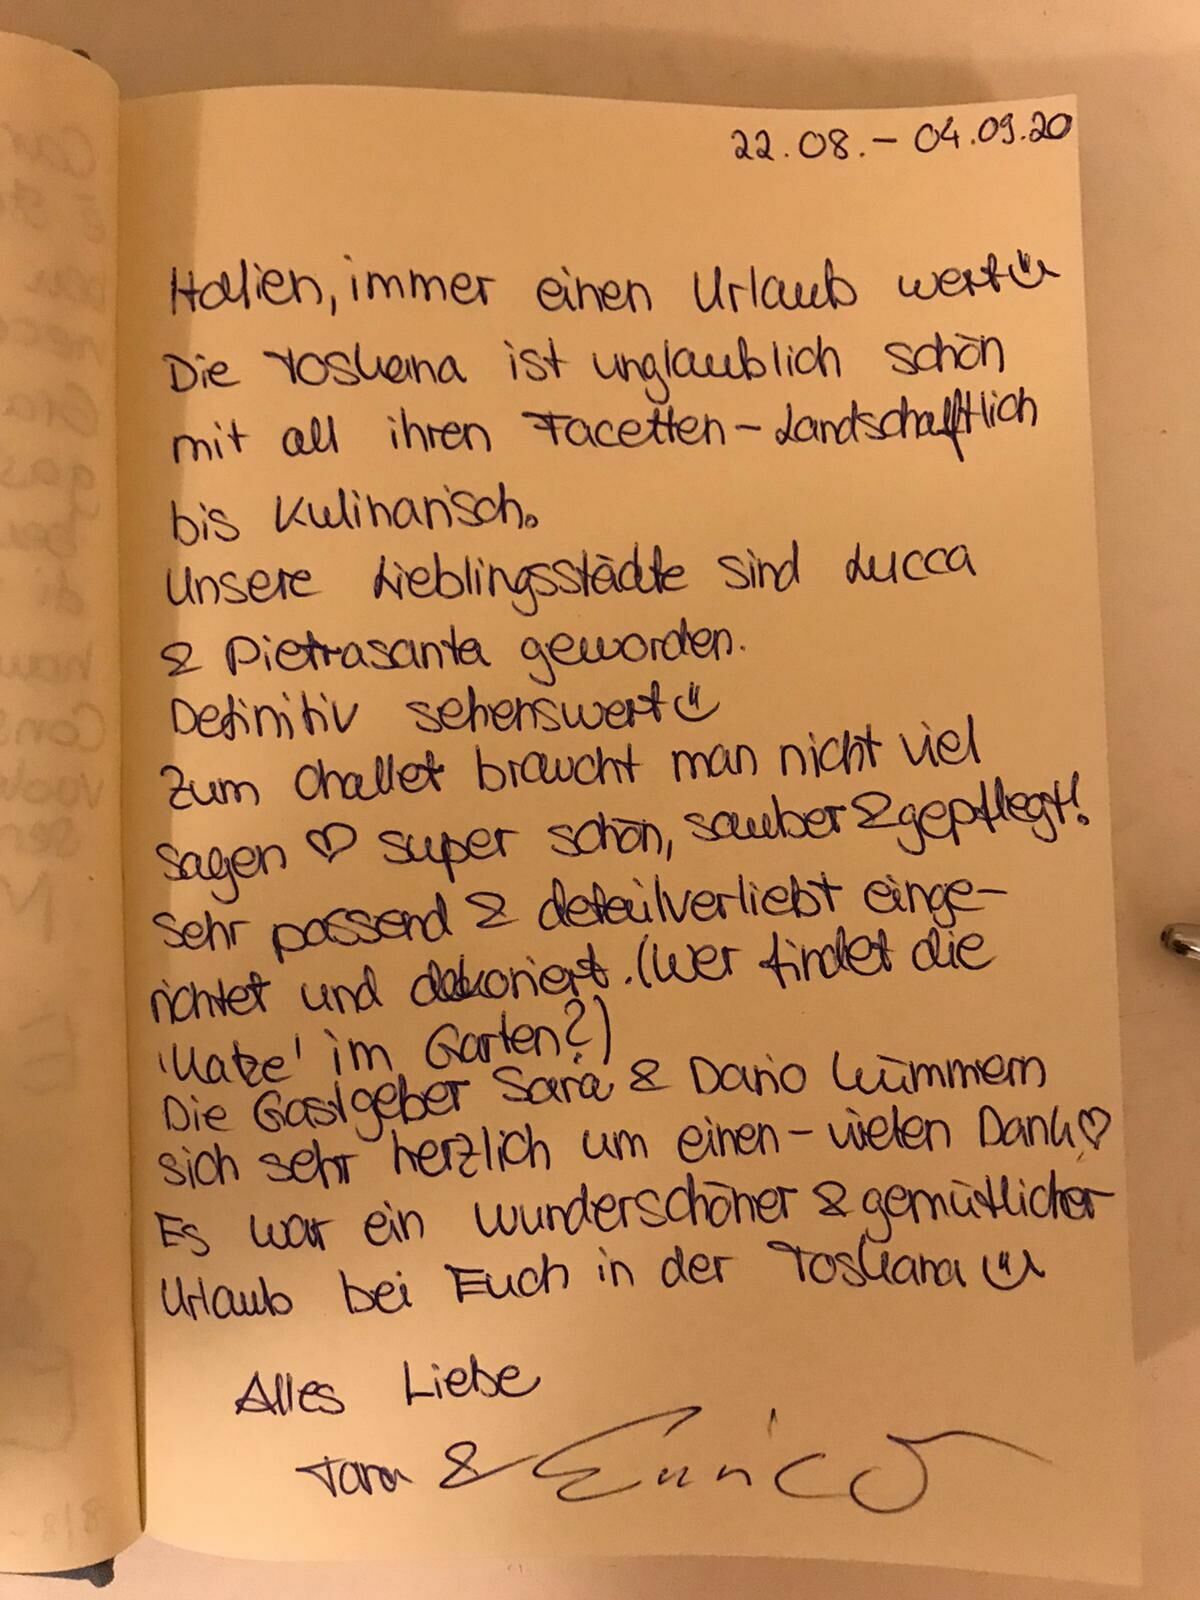 22.08. – 04.09.20
Italien, immer einen Urlaub wert
Die Toskana ist unglaublich schön
mit all ihren Facetten – Landschaftlich
bis Kulinarisch.
Unsere Lieblingsstädte sind Lucca
& Pietrasanta geworden.
Definitiv sehenswert
Zum Challet braucht man nicht viel
sagen ♡ super schön, sauber & gepflegt!
Sehr passend & detailverliebt einge-
richtet und dekoriert. (Wer findet die
'Katze' im Garten?)
Die Gastgeber Sara & Dario kümmern
sich sehr herzlich um einen – vielen Dank ♡
Es war ein wunderschöner & gemütlicher
Urlaub bei Euch in der Toskana
Alles Liebe
Tara & Enrico